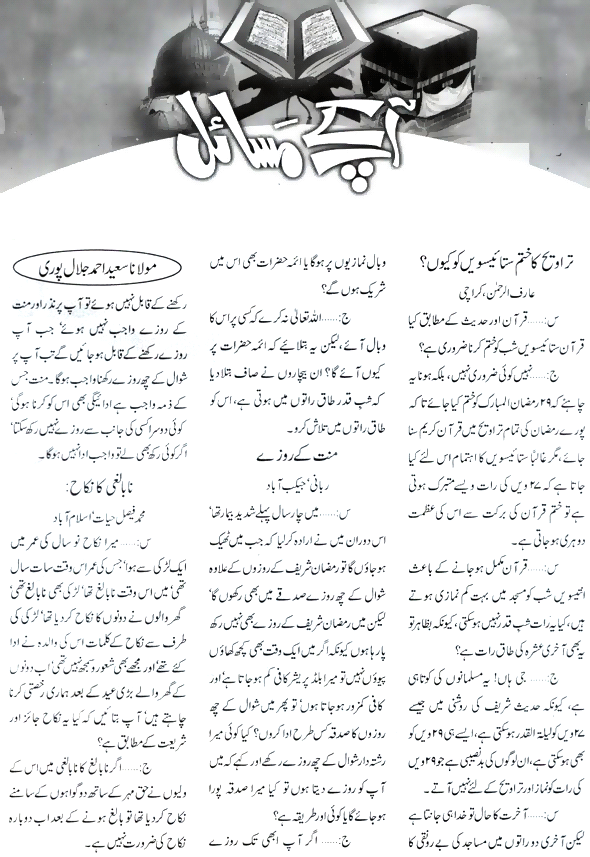 آپ کے مسائل
مولانا سعید احمد جلال پوری
تراویح کا ختم ستائیسویں کو کیوں؟
عارف الرحمٰن، کراچی
س:......قرآن اور حدیث کے مطابق کیا
قرآن ستائیسویں شب کو ختم کرنا ضروری ہے؟
ج:......نہیں کوئی ضروری نہیں، بلکہ ہونا یہ
چاہئے کہ ۲۹ رمضان المبارک کو ختم کیا جائے تاکہ
پورے رمضان کی تمام تراویح میں قرآن کریم سنا
جائے، مگر غالباً ستائیسویں کا اہتمام اس لئے کیا
جاتا ہے کہ ۲۷ ویں کی رات ویسے متبرک ہوتی
ہے تو ختم قرآن کی برکت سے اس کی عظمت
دوہری ہوجاتی ہے۔
س:......قرآن مکمل ہوجانے کے باعث
انتیسویں شب کو مسجد میں بہت کم نمازی ہوتے
ہیں، کیا یہ رات شب قدر نہیں ہوسکتی، کیونکہ بظاہر تو
یہ بھی آخری عشرہ کی طاق رات ہے؟
ج:......جی ہاں! یہ مسلمانوں کی کوتاہی
ہے، کیونکہ حدیث شریف کی روشنی میں جیسے
۲۷ ویں کو لیلۃ القدر ہوسکتی ہے، ایسے ہی ۲۹ ویں کو
بھی ہوسکتی ہے، ان لوگوں کی بدنصیبی ہے جو ۲۹ ویں
کی رات کو نماز اور تراویح کے لئے نہیں آتے۔
س:......آخرت کا حال تو خدا ہی جانتا ہے
لیکن آخری دو راتوں میں مساجد کی بے رونقی کا
وبال نمازیوں پر ہوگا یا ائمہ حضرات بھی اس میں
شریک ہوں گے؟
ج:......اللہ تعالیٰ نہ کرے کہ کسی پر اس کا
وبال آئے، لیکن یہ بتلائیے کہ ائمہ حضرات پر
کیوں آئے گا؟ ان بیچاروں نے صاف بتلادیا
کہ شب قدر طاق راتوں میں ہوتی ہے، اس کو
طاق راتوں میں تلاش کرو۔
منت کے روزے
ربانی، جیکب آباد
س:......میں چار سال پہلے شدید بیمار تھا،
اس دوران میں نے ارادہ کرلیا کہ جب میں ٹھیک
ہوجاؤں گا تو رمضان شریف کے روزوں کے علاوہ
شوال کے چھ روزے صدقے میں بھی رکھوں گا،
لیکن میں رمضان شریف کے روزے بھی نہیں رکھ
پارہا ہوں کیونکہ اگر میں ایک وقت بھی کچھ کھاؤں
پیوؤں نہیں تو میرا بلڈ پریشر کافی کم ہوجاتا ہے اور
کافی کمزور ہوجاتا ہوں، تو پھر میں شوال کے چھ
روزوں کا صدقہ کس طرح ادا کروں؟ کیا کوئی میرا
رشتہ دار شوال کے چھ روزے رکھے اور کہے کہ میں
آپ کو روزے دیتا ہوں تو کیا میرا صدقہ پورا
ہوجائے گا یا کوئی اور طریقہ ہے؟
ج:......اگر آپ ابھی تک روزے
رکھنے کے قابل نہیں ہوئے تو آپ پر نذر اور منت
کے روزے واجب نہیں ہوئے، جب آپ
روزے رکھنے کے قابل ہوجائیں گے تب آپ پر
شوال کے چھ روزے رکھنا واجب ہوگا۔ منت جس
کے ذمہ واجب ہے ادائیگی بھی اس کو کرنا ہوگی،
کوئی دوسرا کسی کی جانب سے روزے نہیں رکھ سکتا،
اگر کوئی رکھ بھی لے تو واجب ادا نہیں ہوگا۔
نابالغی کا نکاح:
محمد فیصل حیات، اسلام آباد
س:......میرا نکاح نو سال کی عمر میں
ایک لڑکی سے ہوا، جس کی عمر اس وقت سات سال
تھی، میں اس وقت نابالغ تھا، لڑکی بھی نابالغ تھی،
گھر والوں نے دونوں کا نکاح کردیا تھا، لڑکی کی
طرف سے نکاح کے کلمات اس کی والدہ نے ادا
کئے تھے، اور مجھے بھی شعور وسمجھ نہیں تھی، اب دونوں
کے گھر والے بڑی عید کے بعد ہماری رخصتی کرنا
چاہتے ہیں، آپ بتائیں کہ کیا یہ نکاح جائز اور
شریعت کے مطابق ہے؟
ج:......اگر نابالغ کا نابالغی میں اس کے
ولیوں نے حق مہر کے ساتھ دو گواہوں کے سامنے
نکاح کردیا تھا تو بالغ ہونے کے بعد اب دوبارہ
نکاح کی ضرورت نہیں ہے۔